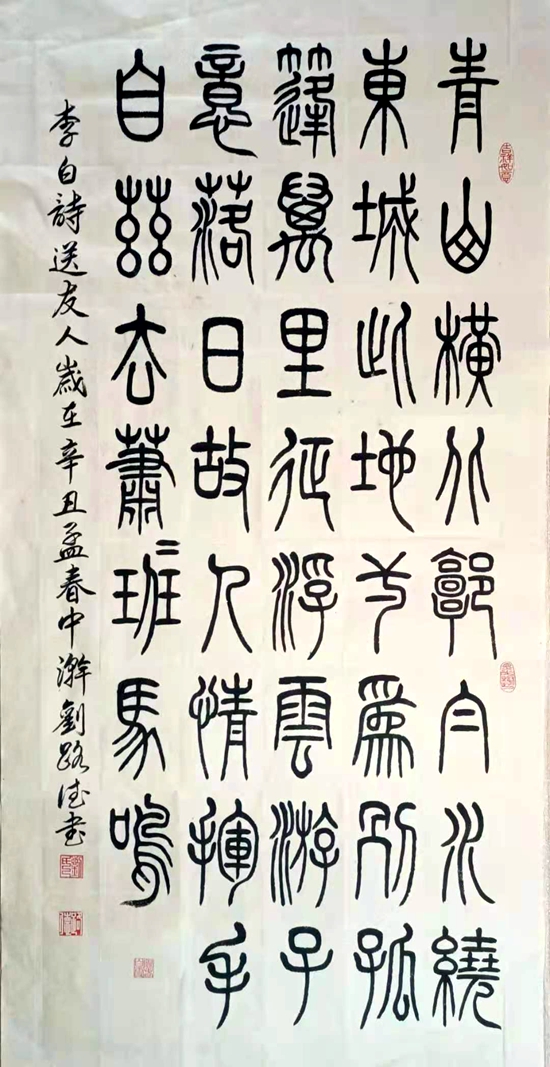 青山橫北郭白水繞
東城此地一爲別孤
篷萬里征浮雲游子
意落日故人情揮手
自茲去蕭〻班馬鳴
李白詩送友人歲在辛丑孟春中澣劉路德書
吉祥如意